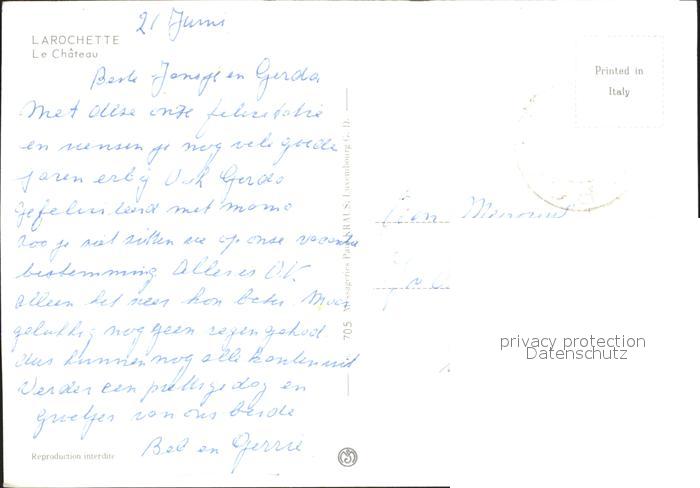 LAROCHETTE
Le Château
21 Juni
Beste Jansje en Gerda
Met deze onze felicitatie
en wensen je nog vele goede
jaren erbij Ook Gerda
gefeliciteerd met mama
zoo je ziet zitten we op onze vacantie
bestemming Alles is O.K.
alleen het weer kon beter. Maar
gelukkig nog geen regen gehad
dus kunnen nog alle kanten uit
Verder een prettige dag en
groetjes van ons beide
Bet en Gerrie
Reproduction interdite
705 Messageries Paul KRAUS, Luxembourg G. D.
Printed in
Italy
privacy protection
Datenschutz